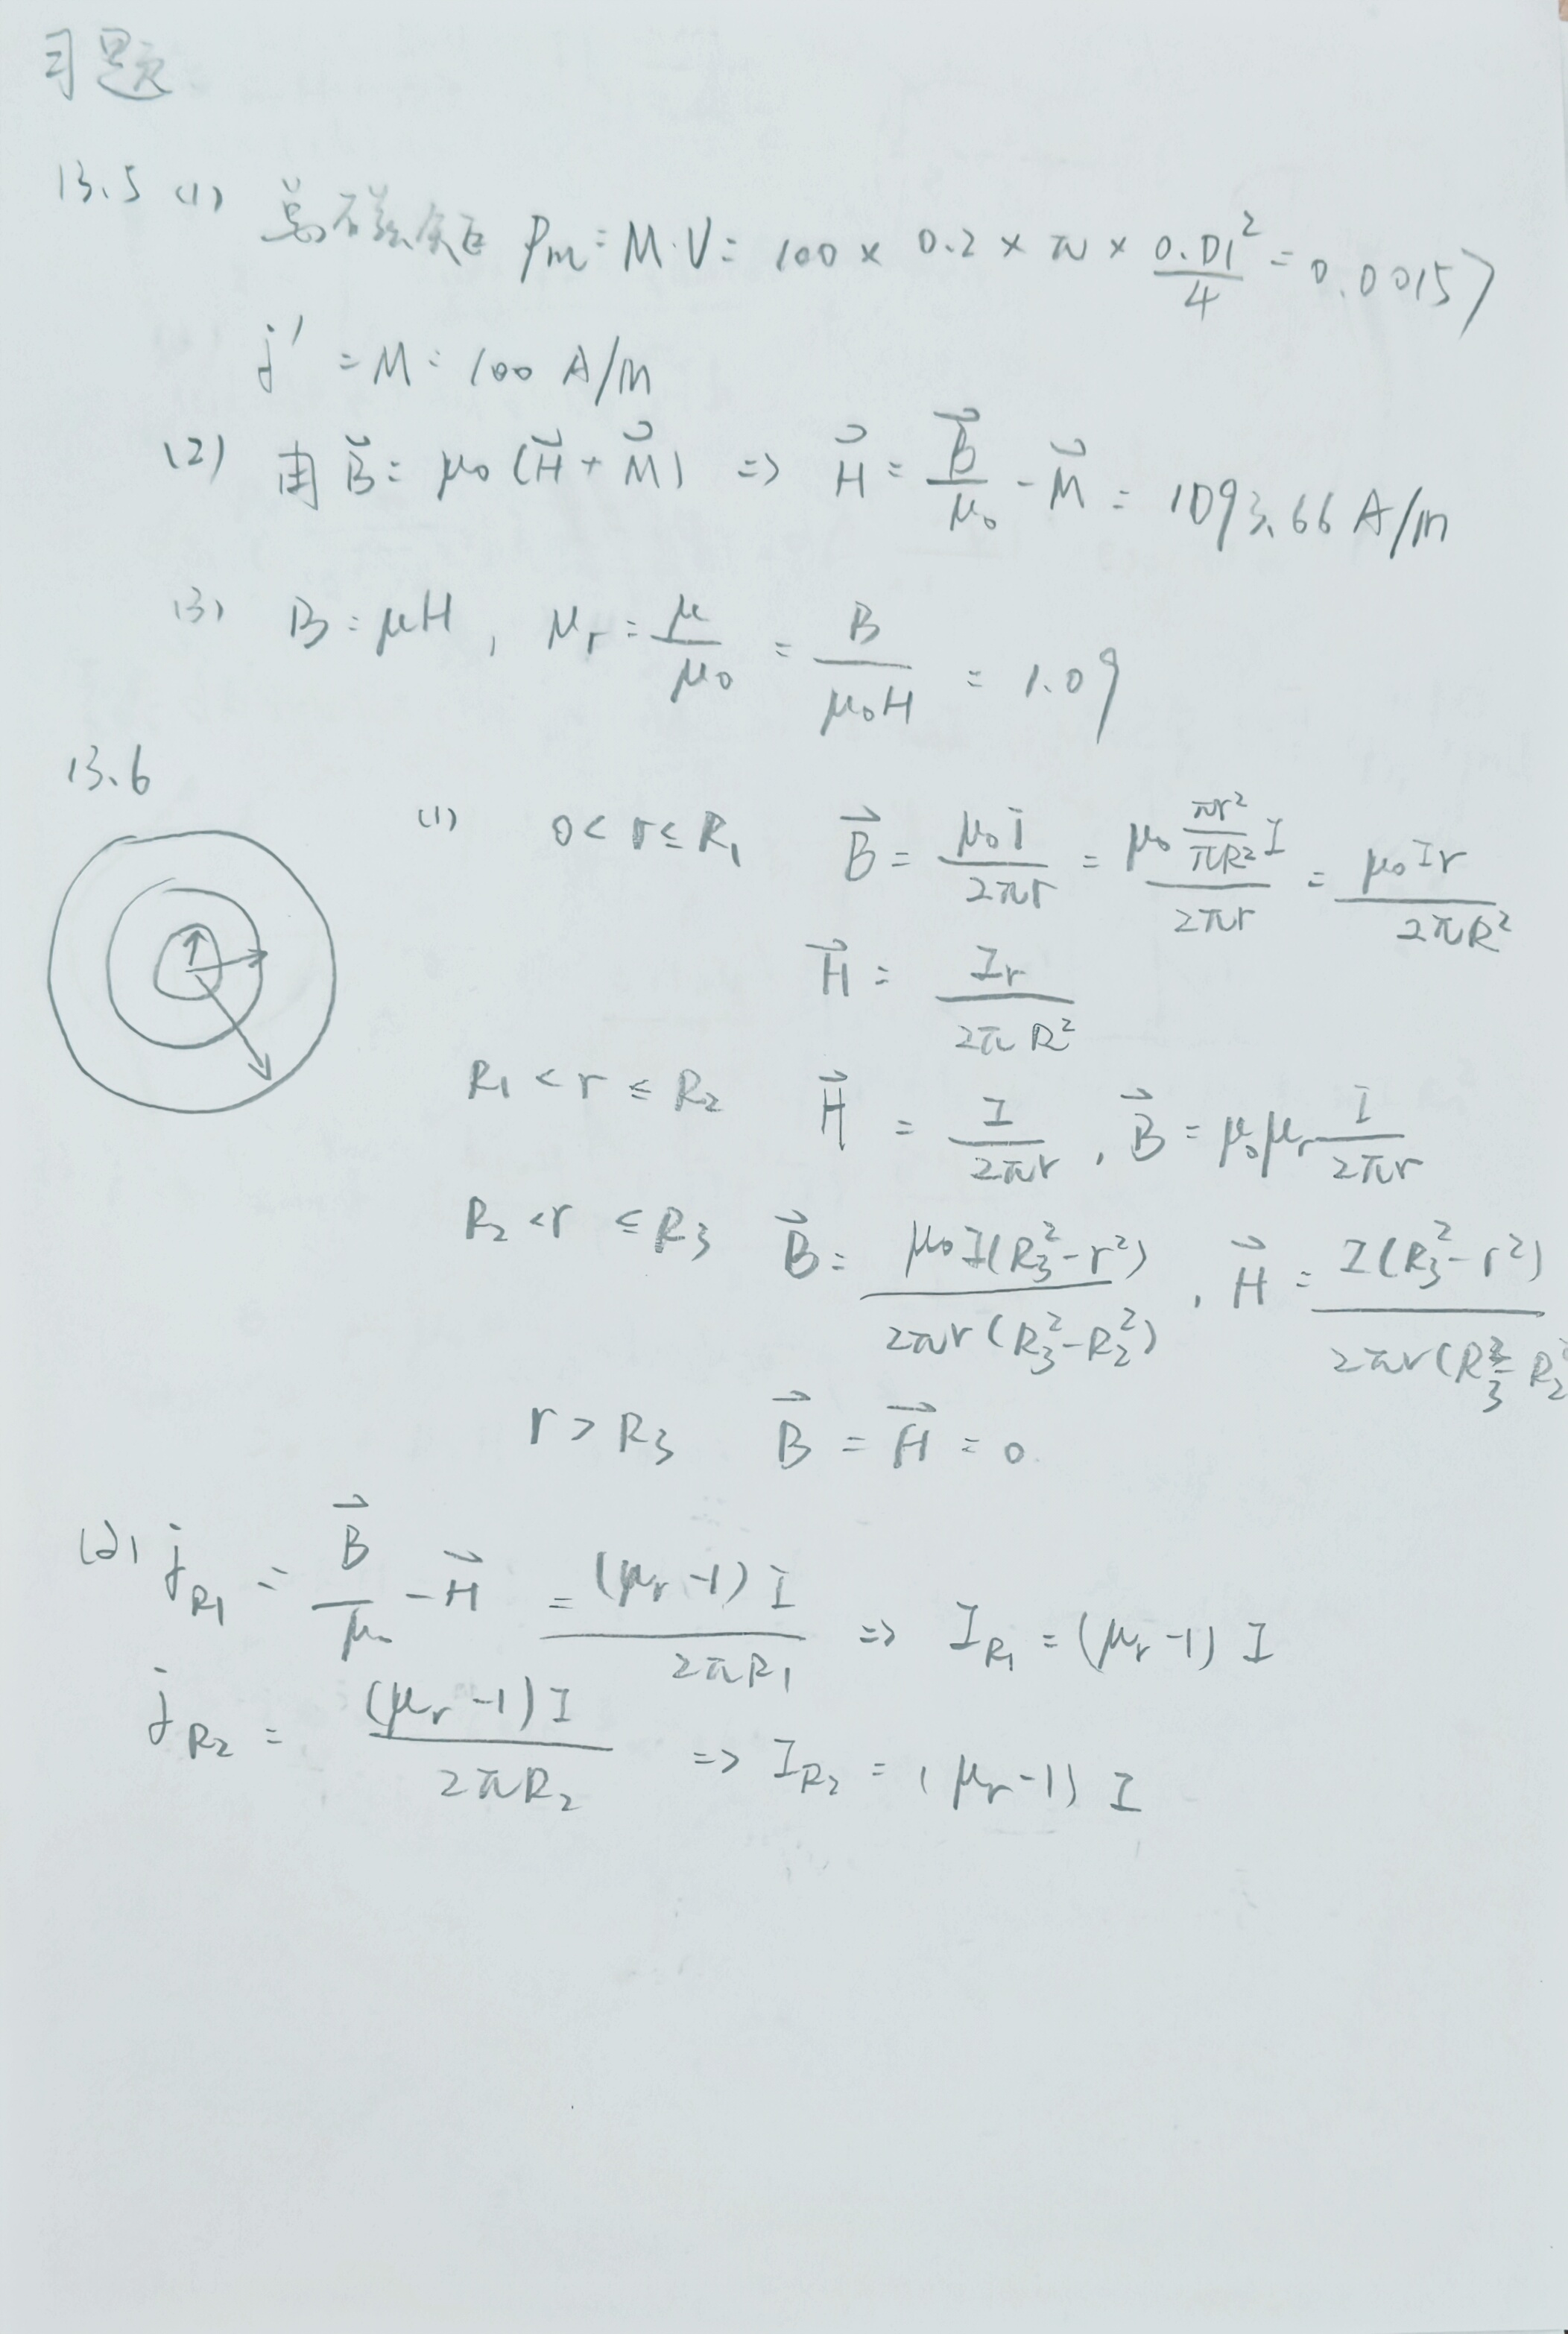 习题
13.5 (1) 总磁矩 Pm = M·V = 100 × 0.2 × π × 0.01²/4 = 0.00157
j' = M = 100 A/m
(2) 由 B⃗ = μ₀(H⃗ + M⃗) ⇒ H⃗ = B⃗/μ₀ - M⃗ = 1093.66 A/m
(3) B = μH, μr = μ/μ₀ = B/(μ₀H) = 1.09
13.6
(1) 0 < r ≤ R₁ B⃗ = μ₀I/(2πr) = μ₀ (πr²/πR²) I/(2πr) = μ₀Ir/(2πR²)
H⃗ = Ir/(2πR²)
R₁ < r ≤ R₂ H⃗ = I/(2πr), B⃗ = μ₀μr I/(2πr)
R₂ < r ≤ R₃ B⃗ = μ₀I(R₃²-r²)/(2πr(R₃²-R₂²)), H⃗ = I(R₃²-r²)/(2πr(R₃²-R₂²
r > R₃ B⃗ = H⃗ = 0.
(2) j_R₁ = B⃗/μ₀ - H⃗ = (μr-1)I/(2πR₁) ⇒ I_R₁ = (μr-1) I
j_R₂ = (μr-1)I/(2πR₂) ⇒ I_R₂ = (μr-1) I